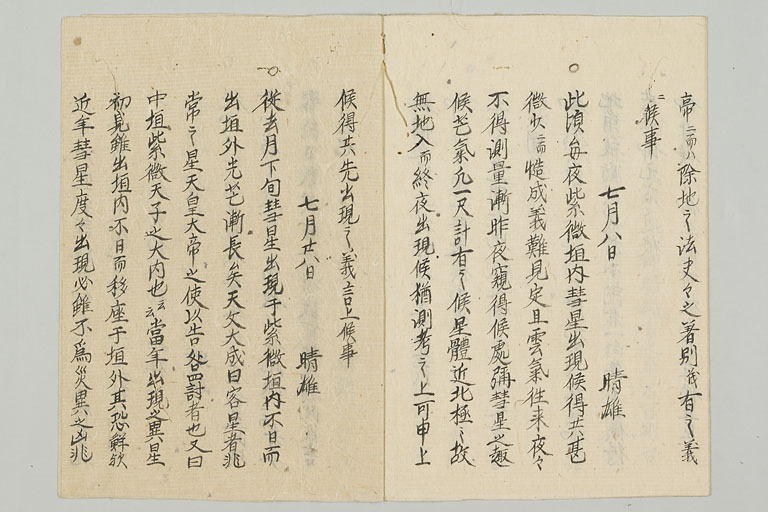 帝ニ而ハ除地之法史々之著別義有之義
ニ候事
七月八日
晴雄
○
此頃毎夜紫微垣内彗星出現候得共甚
微少ニ而慥成義難見定且雲氣往来夜々
不得測量漸昨夜窺得候處彌彗星之趣
候芒氣凡一尺計有之候星體近北極之故
無地入而終夜出現候猶測考之上可申上
候得共先出現之義言上候事
七月廿八日
晴雄
○
従去月下旬彗星出現于紫微垣内不日而
出垣外光芒漸長矣天文大成曰客星者非
常之星天皇大帝之使以告咎罰者也又曰
中垣紫微天子之大内也云云當年出現之異星
初見雖出垣内不日而移座于垣外其恐解欤
近年彗星度々出現必雖不為災異之凶兆